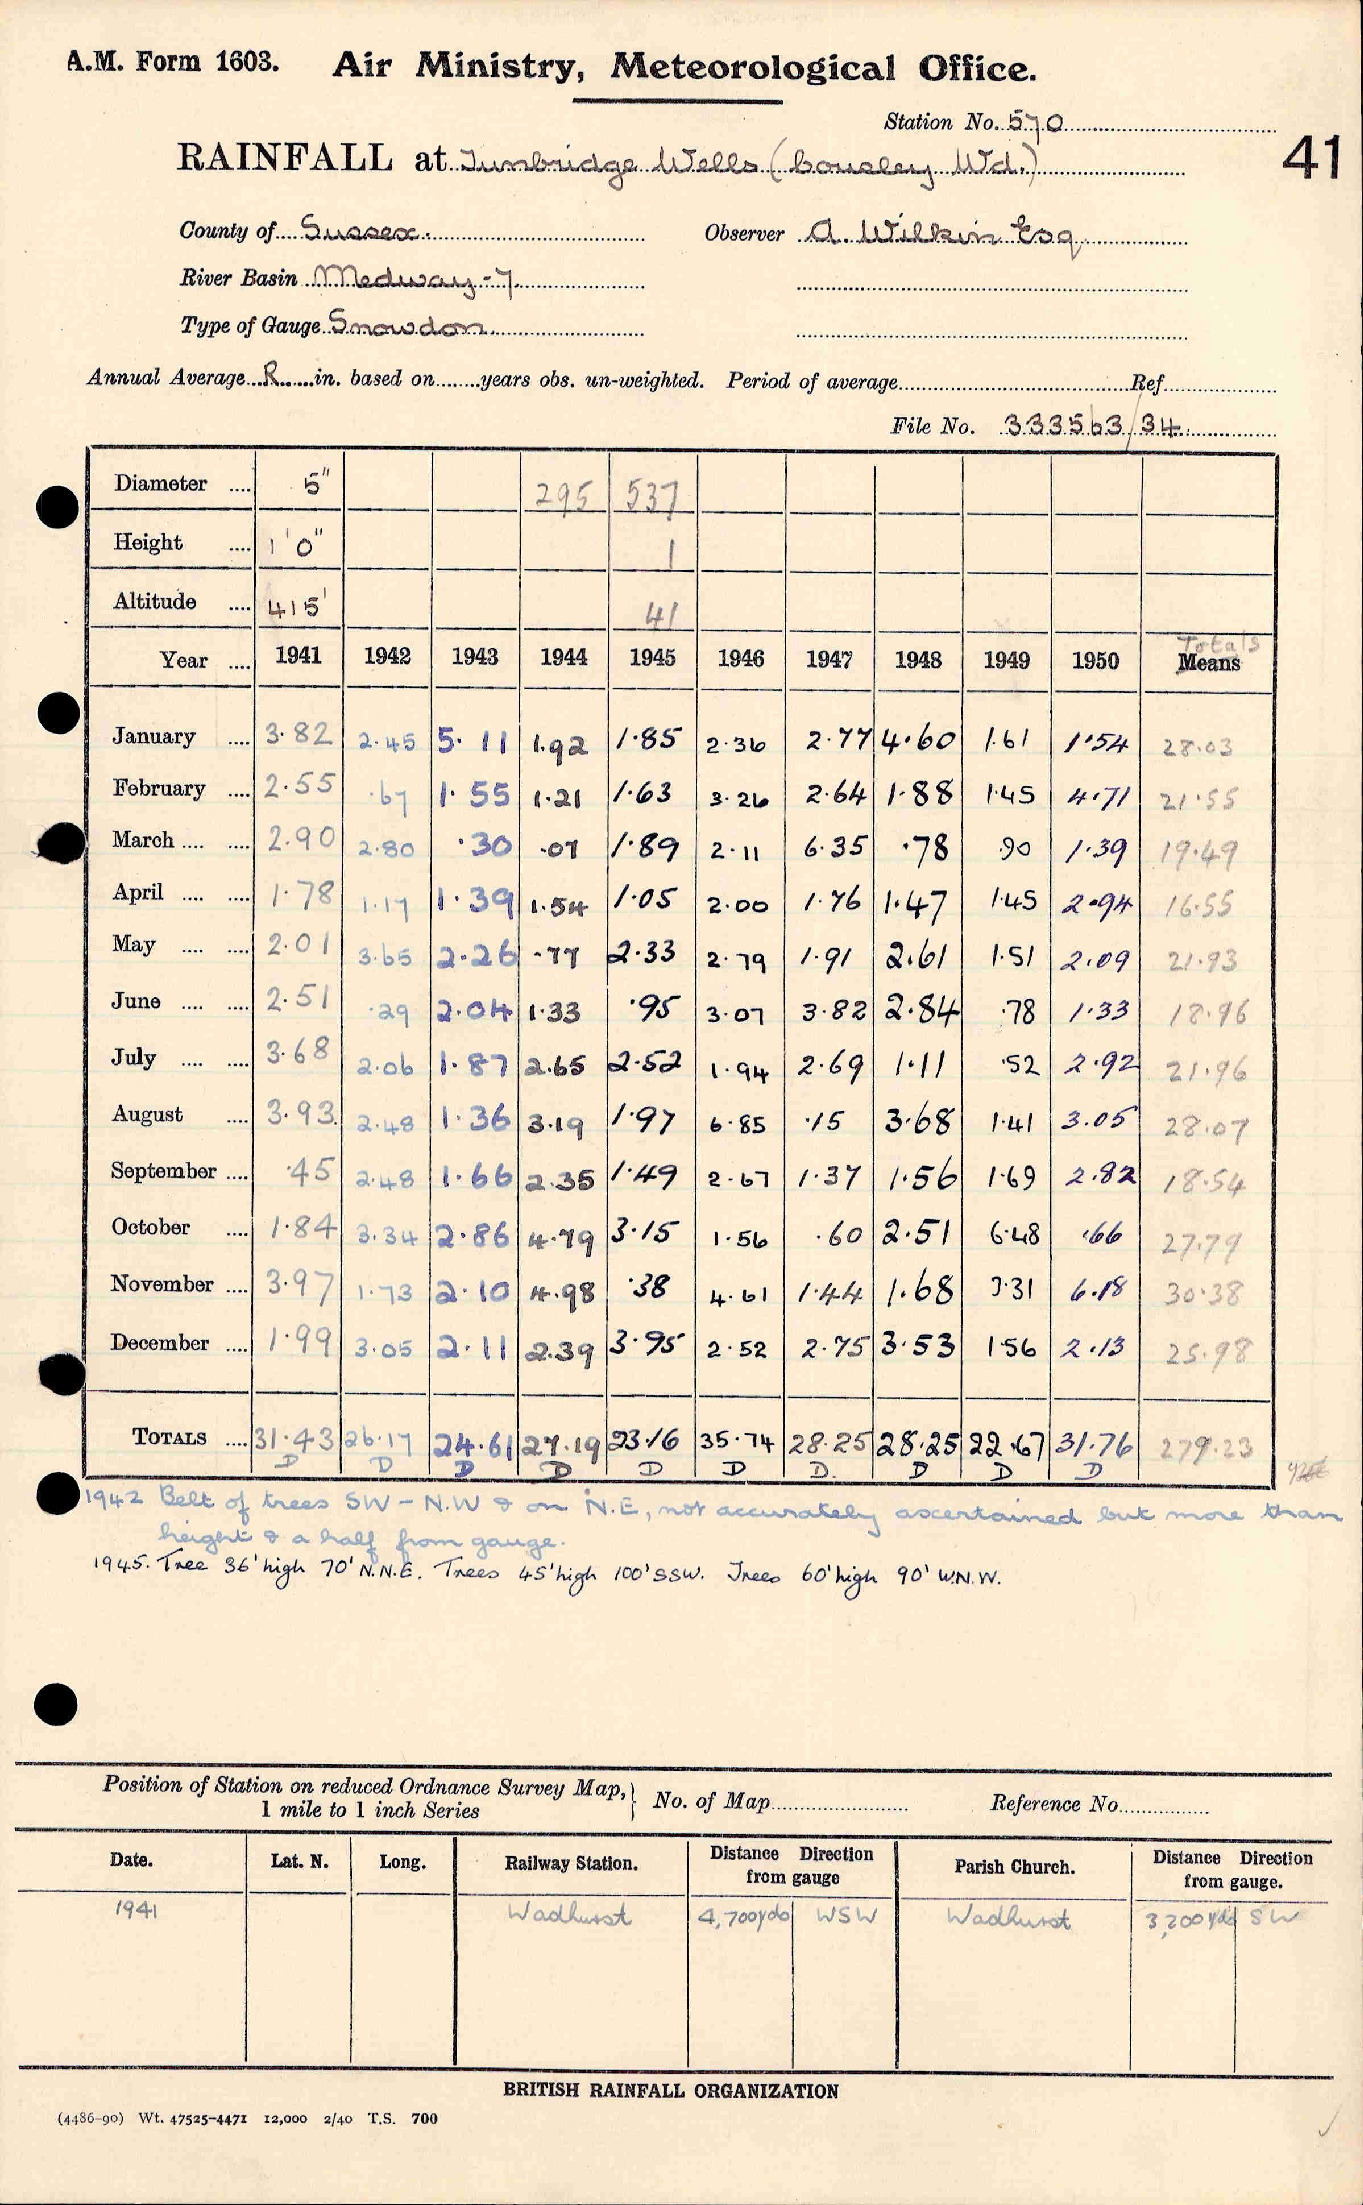 A.M. Form 1603. Air Ministry, Meteorological Office.
Station No. 570
41
RAINFALL at Tunbridge Wells (Cousley Wd.)
County of Sussex. Observer A. Wilkin Esq
River Basin Medway-7
Type of Gauge Snowdon.
Annual Average R in. based on years obs. un-weighted. Period of average Ref
File No. 333563/34
Diameter 5" 295 537
Height 1'0" 1
Altitude 415' 41
Totals
Year 1941 1942 1943 1944 1945 1946 1947 1948 1949 1950 Means
January 3.82 2.45 5.11 1.92 1.85 2.36 2.77 4.60 1.61 1.54 28.03
February 2.55 .67 1.55 1.21 1.63 3.26 2.64 1.88 1.45 4.71 21.55
March 2.90 2.80 .30 .07 1.89 2.11 6.35 .78 .90 1.39 19.49
April 1.78 1.17 1.39 1.54 1.05 2.00 1.76 1.47 1.45 2.94 16.55
May 2.01 3.65 2.26 .77 2.33 2.79 1.91 2.61 1.51 2.09 21.93
June 2.51 .29 2.04 1.33 .95 3.07 3.82 2.84 .78 1.33 18.96
July 3.68 2.06 1.87 2.65 2.52 1.94 2.69 1.11 .52 2.92 21.96
August 3.93 2.48 1.36 3.19 1.97 6.85 .15 3.68 1.41 3.05 28.07
September .45 2.48 1.66 2.35 1.49 2.67 1.37 1.56 1.69 2.82 18.54
October 1.84 3.34 2.86 4.79 3.15 1.56 .60 2.51 6.48 .66 27.79
November 3.97 1.73 2.10 4.98 .38 4.61 1.44 1.68 3.31 6.18 30.38
December 1.99 3.05 2.11 2.39 3.95 2.52 2.75 3.53 1.56 2.13 25.98
TOTALS 31.43 26.17 24.61 27.19 23.16 35.74 28.25 28.25 22.67 31.76 279.23
D D D D D D D. D D D
1942 Belt of trees SW - N.W & on N.E, not accurately ascertained but more than
height & a half from gauge.
1945. Tree 36' high 70' N.N.E. Trees 45' high 100' SSW. Trees 60' high 90' W.N.W.
Position of Station on reduced Ordnance Survey Map,
1 mile to 1 inch Series
No. of Map Reference No.
Date. Lat. N. Long. Railway Station. Distance Direction from gauge Parish Church. Distance Direction from gauge.
1941 Wadhurst 4,700yds WSW Wadhurst 3,200yds SW
BRITISH RAINFALL ORGANIZATION
(4486-90) Wt. 47525-4471 12,000 2/40 T.S. 700